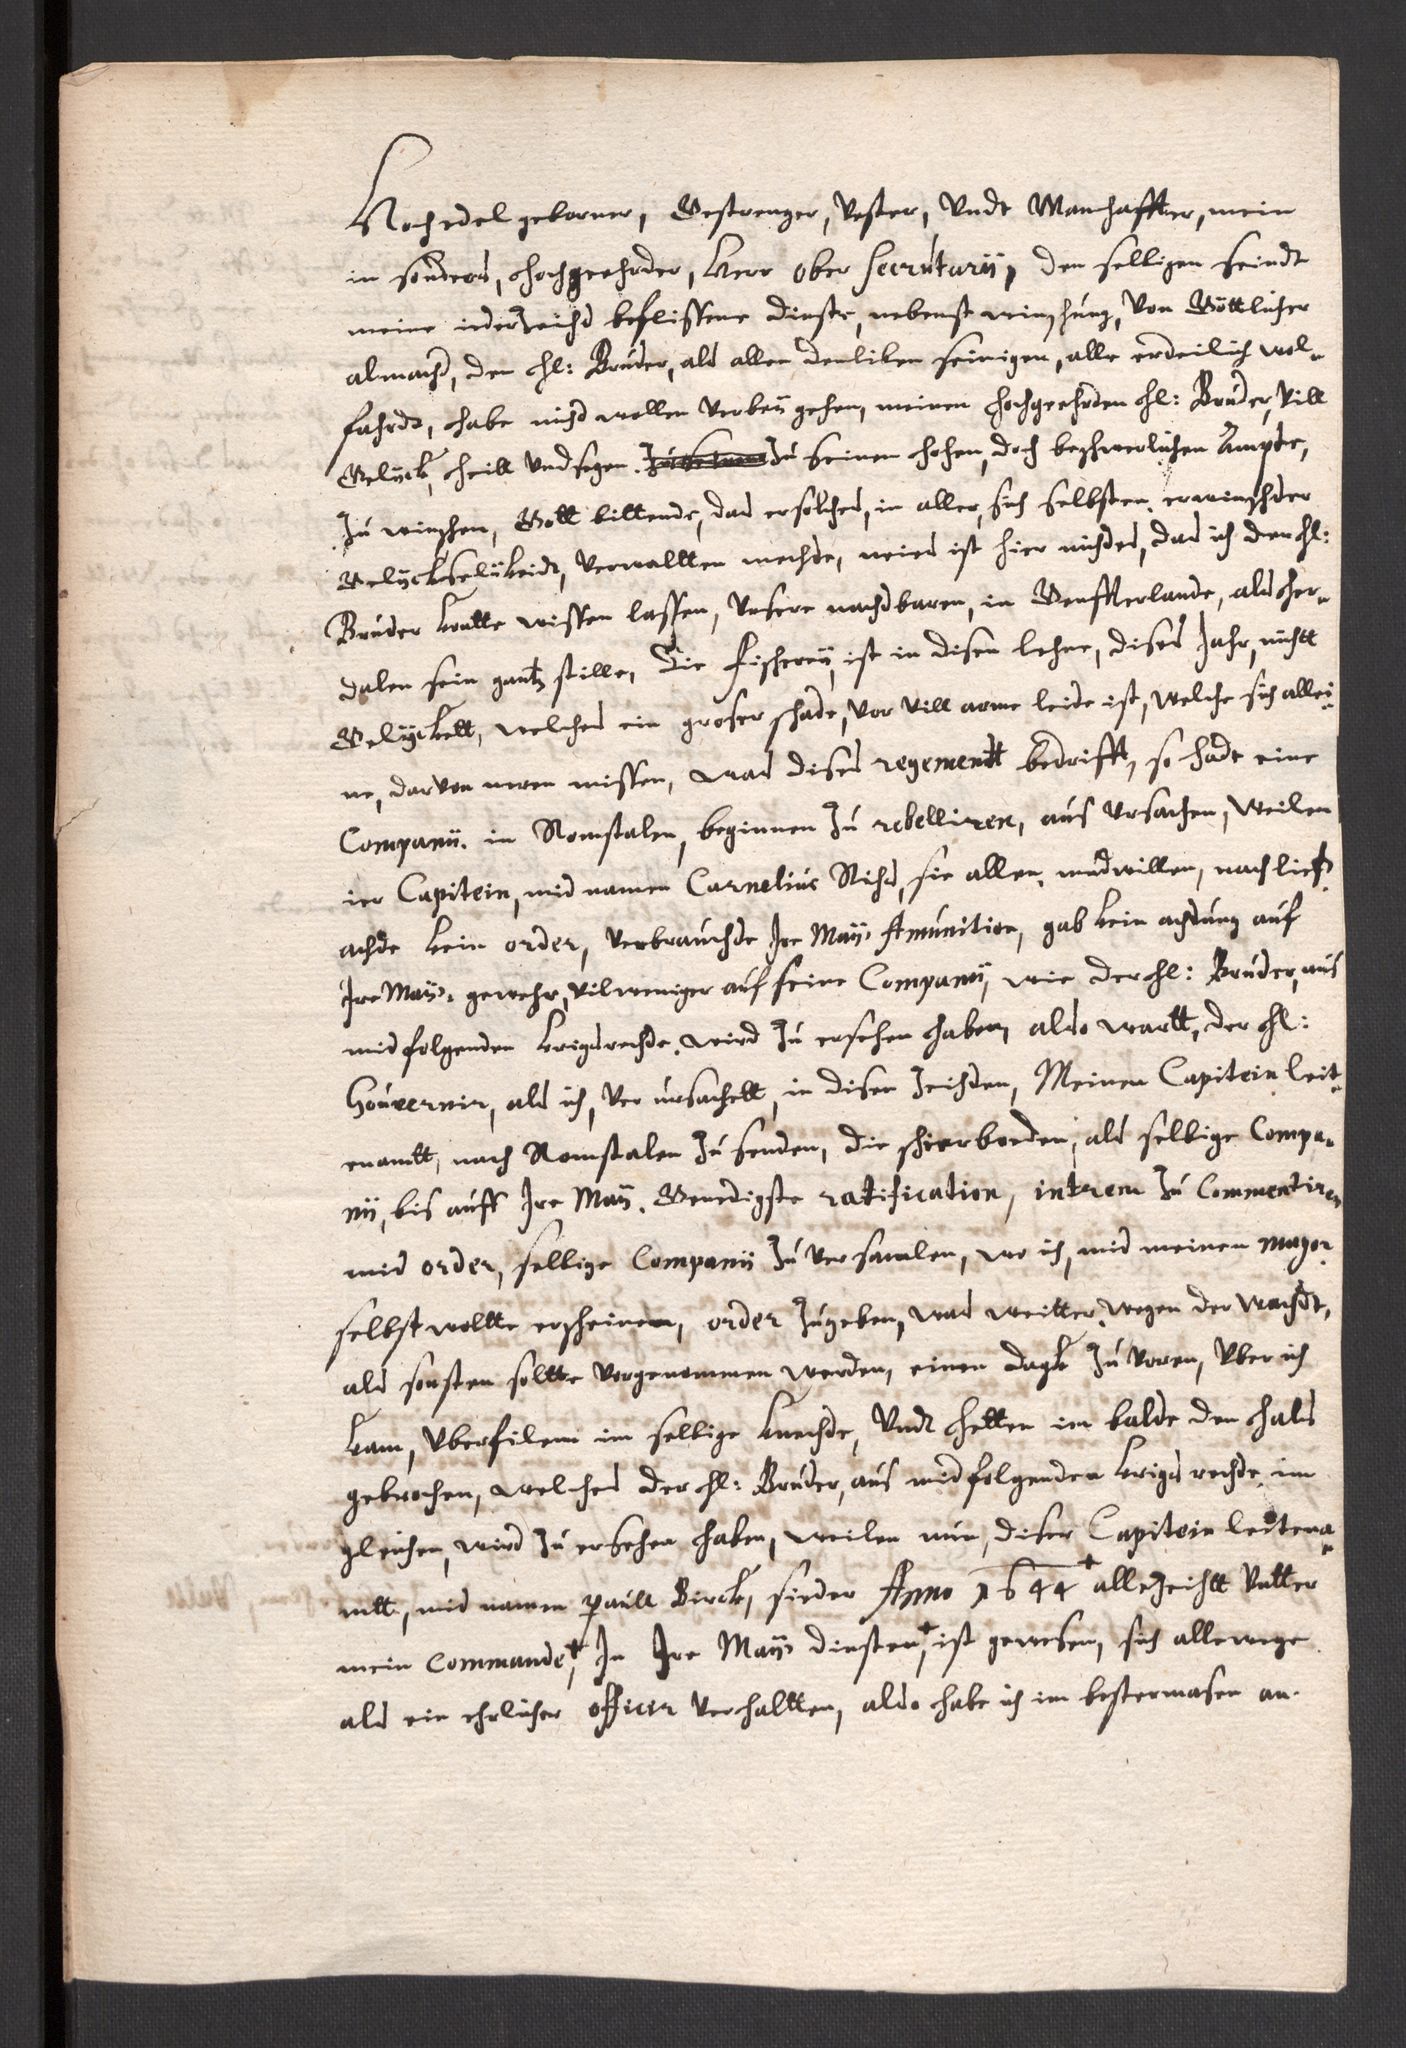 Hochedel geborner, Gestrenger, Vester, Undt Manhaffter, mein
in sonders, hochgeehrder, Herr ober Secrutarÿ, den selbigen seindt
meine iederzeihd beflissene dinste, nebenst winschung, von Göttlicher
almachd, den hl: Bruder, als allen denliben seinigen, alle erdeilich wol-
fahrdt, habe nichd wollen verbeÿ gehen, meinen hochgeehrden hl: Bruder, vill
Gelück, heill Undsegen. zu seinen hohen, doch beschwerlichen Ampte,
Zu winschen, Gott bittende, das ersolches, in aller, sich selbsten erwinschder
Gelückseligkeidt, verwaltten mechde, neies ist hier nichdes, das ich den hl:
Bruder kontte wissen lassen, Unsere nachdbaren, in Gemsterlande, als her-
dalen sein gantz stille, Die fischereÿ, ist in disen lehne, dises Jahr, nichtt
Gelückett, welches ein groser schade, vor vill arme leide ist, welche sich allei-
ne, darvon neren missen, was dises regementt bedrifft, so hadt eine
Companÿ. in Romstalen, beginnen zu rebelliren, aus Ursachen, weilen
ier Capitein, mid namen Carnelius Nihs, sie allen mudwillen, nachlies
achde kein order, verbrauchde Ire Maÿ. Amunition, gab kein achdung auf
Ire Maÿ. gewehr, vilweniger auf seine Companÿ, wie der hl: Bruder, aus
midfolgenden krigsrechde. wird zu ersehen haben, also wartt, der hl:
Gouvernir, als ich, ver ursachett, in disen Zeihden, Meinen Capitein leit-
enamtt, nach Romstalen zu senden, die schierboeden, als selbige Compa-
nÿ, bis auff Ire Maÿ. Genedigste ratification, intrem zu Commentiren
mid order, selbige Companÿ zu versamlen, wo ich, mid meinen major
selbst wollte erscheinen, order zugeben, was weitter wegen der wachdt,
als sonsten sollte vorgenommen werden, einen dagk zu voren, Uber ich
kam, Uberfilem im selbige knechde, Undt hetten im balde den hals
gebrochen, welches der hl: Bruder, aus midfolgenden krigs rechde im
gleichen, wird zu ersehen haben, weilen nun, diser Capitein leitena-
mtt, mid namen paull Birck, sieder Anno 1644 allezeihtt Untter
mein Commande, In Ire Maÿ dinsten, ist gewesen, sich allewege
als ein ehrlicher officer verhaltten, also habe ich im bestermasen an-